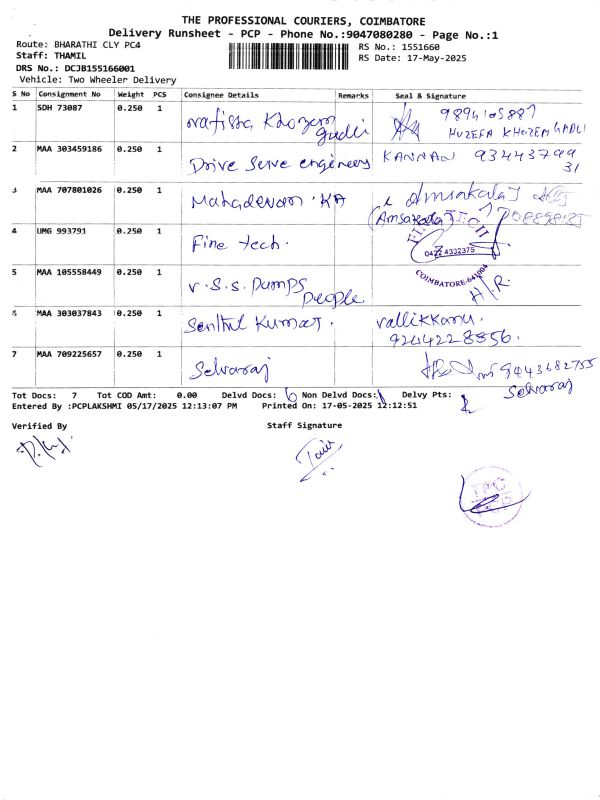 THE PROFESSIONAL COURIERS, COIMBATORE
Delivery Runsheet - PCP - Phone No.:9047080280 - Page No.:1
Route: BHARATHI CLY PC4
RS No.: 1551660
Staff: THAMIL
RS Date: 17-May-2025
DRS No.: DCJB155166001
Vehicle: Two Wheeler Delivery
S No Consignment No Weight PCS Consignee Details Remarks Seal & Signature
1 SDH 73087 0.250 1 Khozem 9894105887
HUZEFA KHOZEM GADLI
2 MAA 303459186 0.250 1 Drive Serve engineers KANNAN 93443799
31
3 MAA 707801026 0.250 1 Mahadevan . KA Amsakala J
(Amsakala J)
4 UMG 993791 0.250 1 Fine tech.
FINE TECH
0422 4332375
COIMBATORE-641004
H.R.
5 MAA 105558449 0.250 1 V.S.S. Pumps
People
6 MAA 303037843 0.250 1 Senthil Kumar. Vallikkannu.
9244228556.
7 MAA 709225657 0.250 1 Selvaraj 9443682755
Selvaraj
Tot Docs: 7 Tot COD Amt: 0.00 Delvd Docs: 6 Non Delvd Docs: 1 Delvy Pts:
Entered By :PCPLAKSHMI 05/17/2025 12:13:07 PM Printed On: 17-05-2025 12:12:51
Verified By Staff Signature